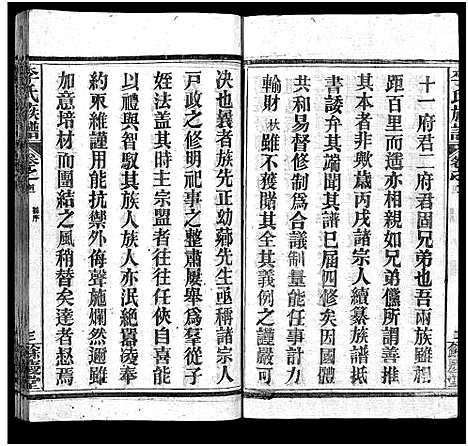 十一府君二府君固兄弟也吾兩族雖相
距百里而遥亦相親如兄弟儻所謂善推
其本者非歟歲丙戌諸宗人續纂族譜抵
書諉弁其端聞其譜已屆四修矣因國體
共和易督修制爲合議制量能任事計力
輸財秋雖不獲贍其全其義例之謹嚴可
李氏族譜
决也囊者族先正幼蘅先生亟稱諸宗人
戸政之修明祀事之整肅屡舉爲羣從子
姪法蓋其時主宗盟者往往任俠自喜能
以禮與智馭其族人族人亦泯絶囂凌奉
約束維謹用能抗禦外侮聲施爛然邇雖
加意培材而團結之風稍替矣達者惄焉
李氏族譜 卷之 序
三 餘慶堂